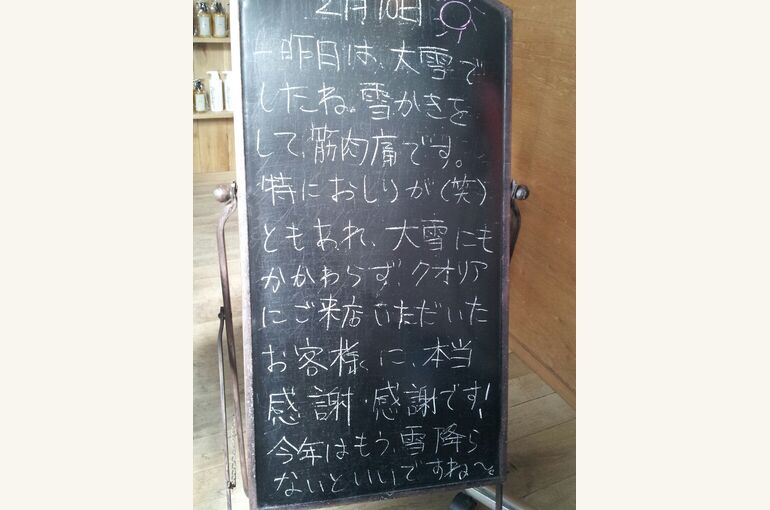 2月10日
一昨日は、大雪で
したね。雪かきを
して、筋肉痛です。
特におしりが(笑)
ともあれ、大雪にも
かかわらず、クオリア
にご来店いただいた
お客様に、本当
感謝・感謝です!
今年はもう、雪降ら
ないといいですね〜。